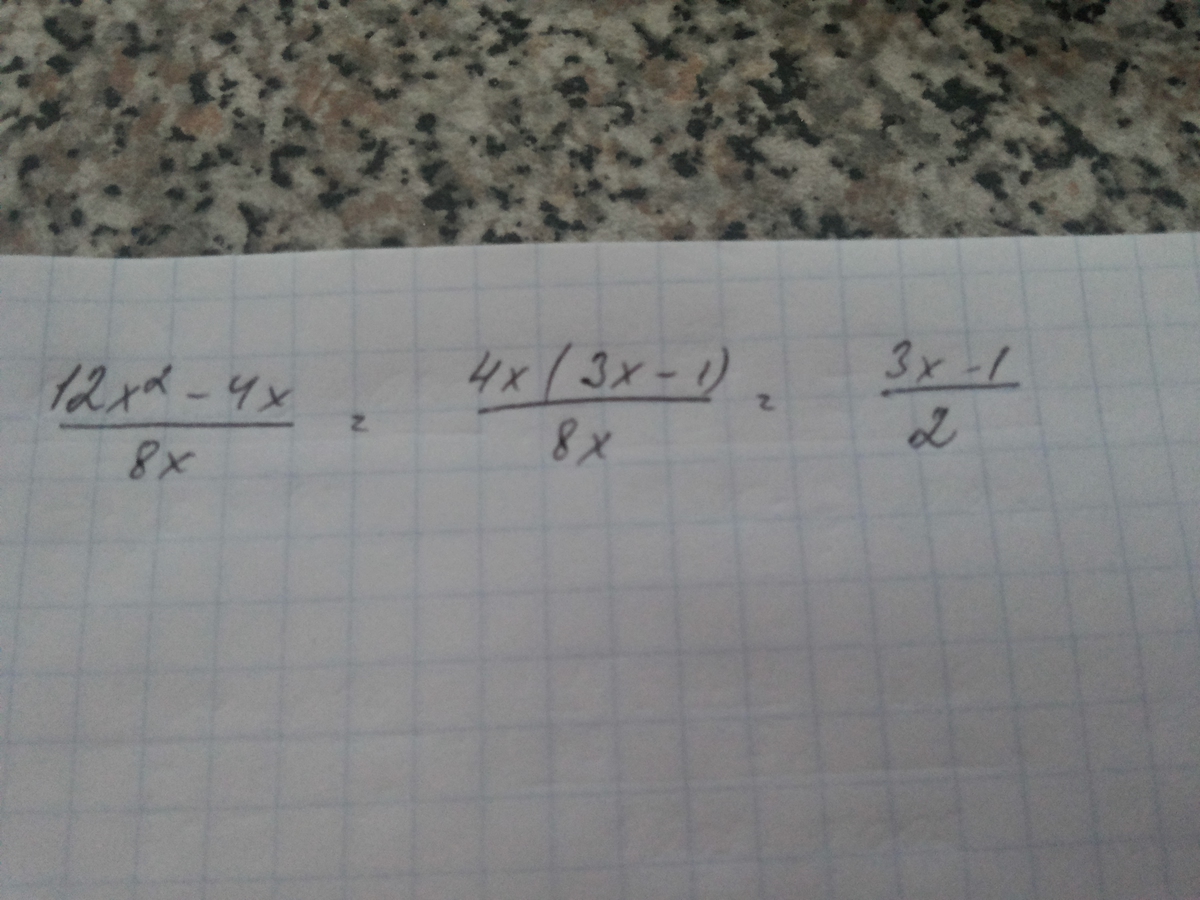 (12x² - 4x)/(8x) = (4x(3x - 1))/(8x) = (3x - 1)/2